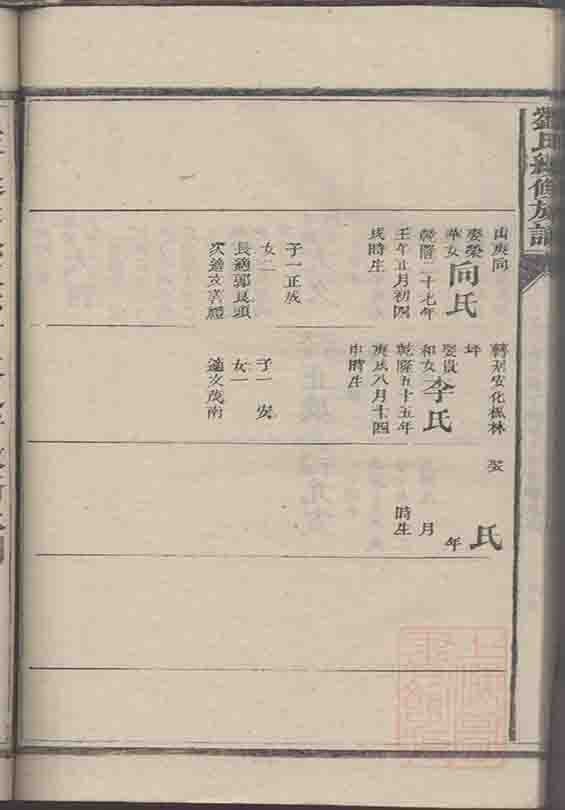 劉氏續修族譜
山庚向
娶榮
華女向氏
乾隆二十七年
壬午五月初四
戌時生
子一正成
女二
長適郭良頭
次適文善體
轉剁安化楓林
坪
娶貴
和女李氏
乾隆五十五年
庚戌八月十四
申時生
子一 安
女一
適文茂南
娶
氏
年
月
時生